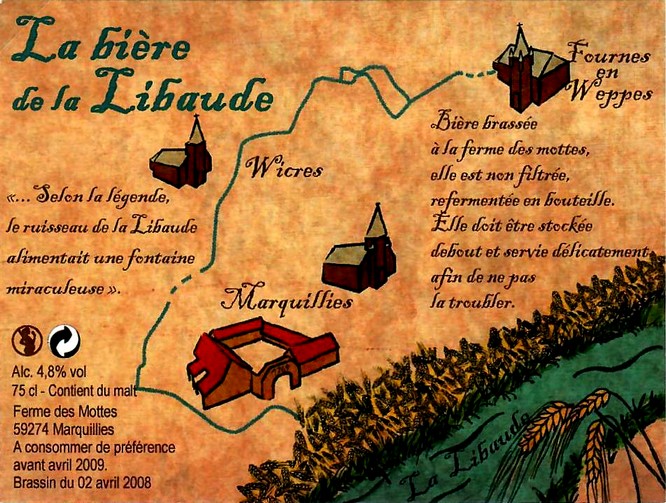 La bière
de la Libaude
Fournes
en
Weppes
Bière brassée
à la ferme des mottes,
elle est non filtrée,
refermentée en bouteille.
Elle doit être stockée
debout et servie délicatement
afin de ne pas
la troubler.
Wicres
«... Selon la légende,
le ruisseau de la Libaude
alimentait une fontaine
miraculeuse ».
Marquillies
Alc. 4,8% vol
75 cl - Contient du malt
Ferme des Mottes
59274 Marquillies
A consommer de préférence
avant avril 2009.
Brassin du 02 avril 2008
La Libaude